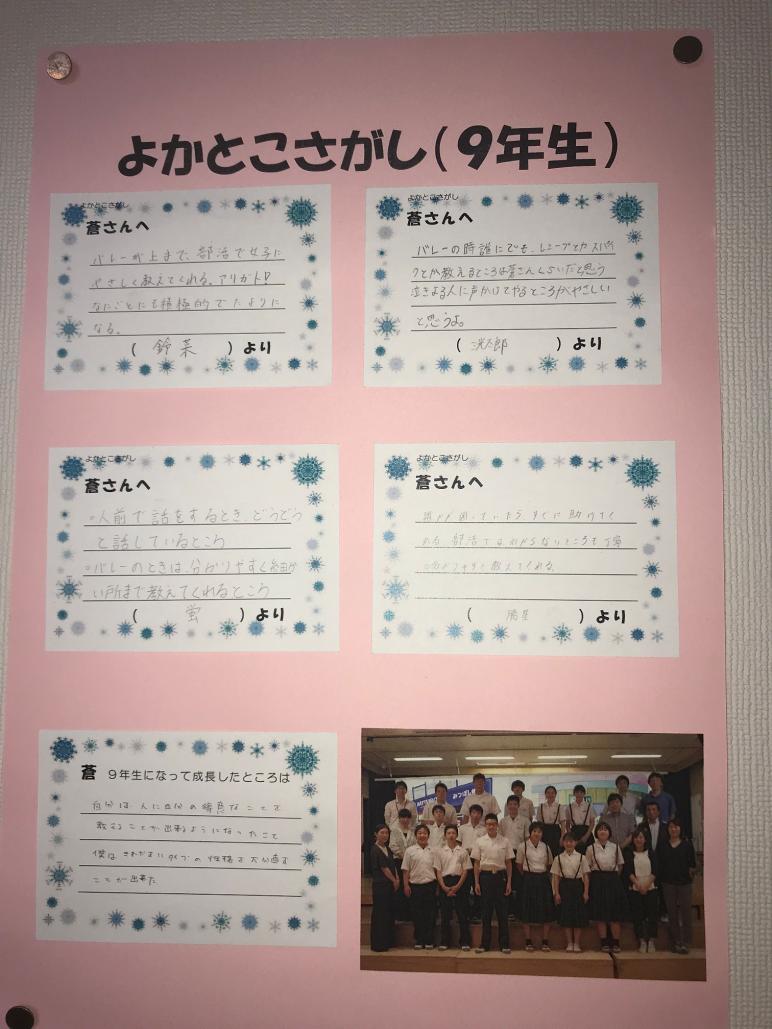 よかとこさがし(9年生)
よかとこさがし
蒼さんへ
バレーが上手で、部活で女子に
やさしく教えてくれる。アリガト!
なにごとにも積極的でたよりに
なる。
(鈴菜)より
よかとこさがし
蒼さんへ
バレーの時誰にでも、レシーブとかスパイ
クとか教えるところは蒼さんくらいだと思う
泣きよる人に声かけてやるところがやさしい
と思うよ。
(洸太郎)より
よかとこさがし
蒼さんへ
○人前で話をするとき、どうどう
と話しているところ
○バレーのときは、分かりやすく細か
い所まで教えてくれるところ
(蛍)より
よかとこさがし
蒼さんへ
困っていたら、すぐに助けてく
れる。部活ではわからないところも丁寧
に分かりやすく教えてくれる。
( )より
蒼 9年生になって成長したところは
自分は、人に自分の得意なことを
教えることが出来るようになったこと
僕は タイプの性格を大分直す
ことが出来た